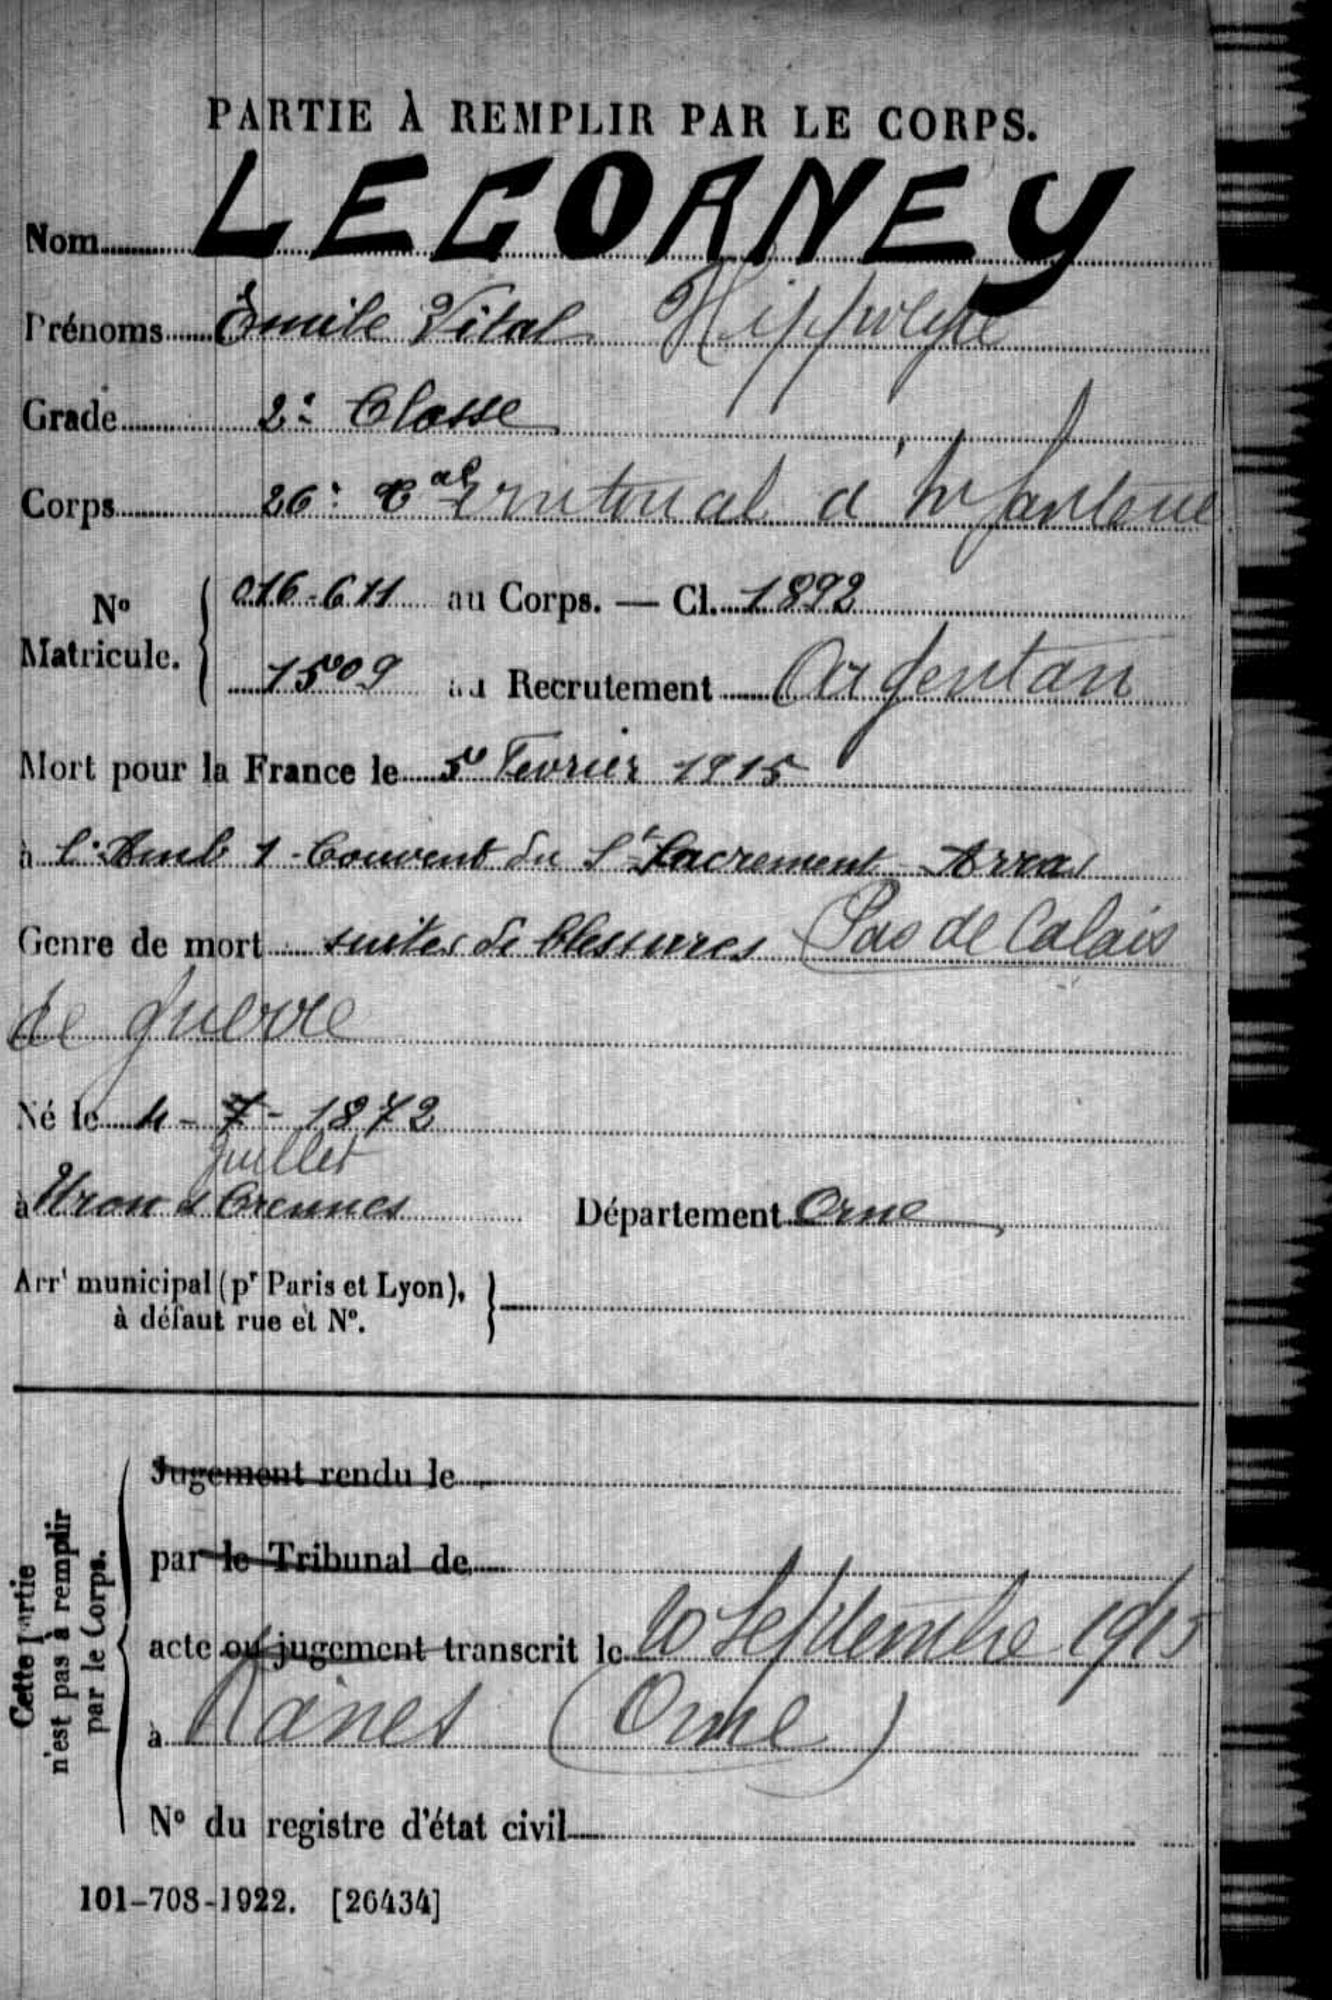 PARTIE À REMPLIR PAR LE CORPS.
Nom LECORNEY
Prénoms Émile Vital Hippolyte
Grade 2e Classe
Corps 26e tal Territorial d'Infanterie
No Matricule. 016-611 au Corps. — Cl. 1892
1509 au Recrutement Argentan
Mort pour la France le 5 Fevrier 1915
à l'Amb 1 - Couvent du St Sacrement Arras
Genre de mort suites de blessures Pas de Calais
de guerre
Né le 4 - 7 - 1872
Juillet
à Urou & Crennes Département Orne
Arrt municipal (pr Paris et Lyon),
à défaut rue et No.
Jugement rendu le
par le Tribunal de
acte ou jugement transcrit le 20 Septembre 1915
à Rânes (Orne)
No du registre d'état civil
Cette partie
n'est pas à remplir
par le Corps.
101-708-1922. [26434]